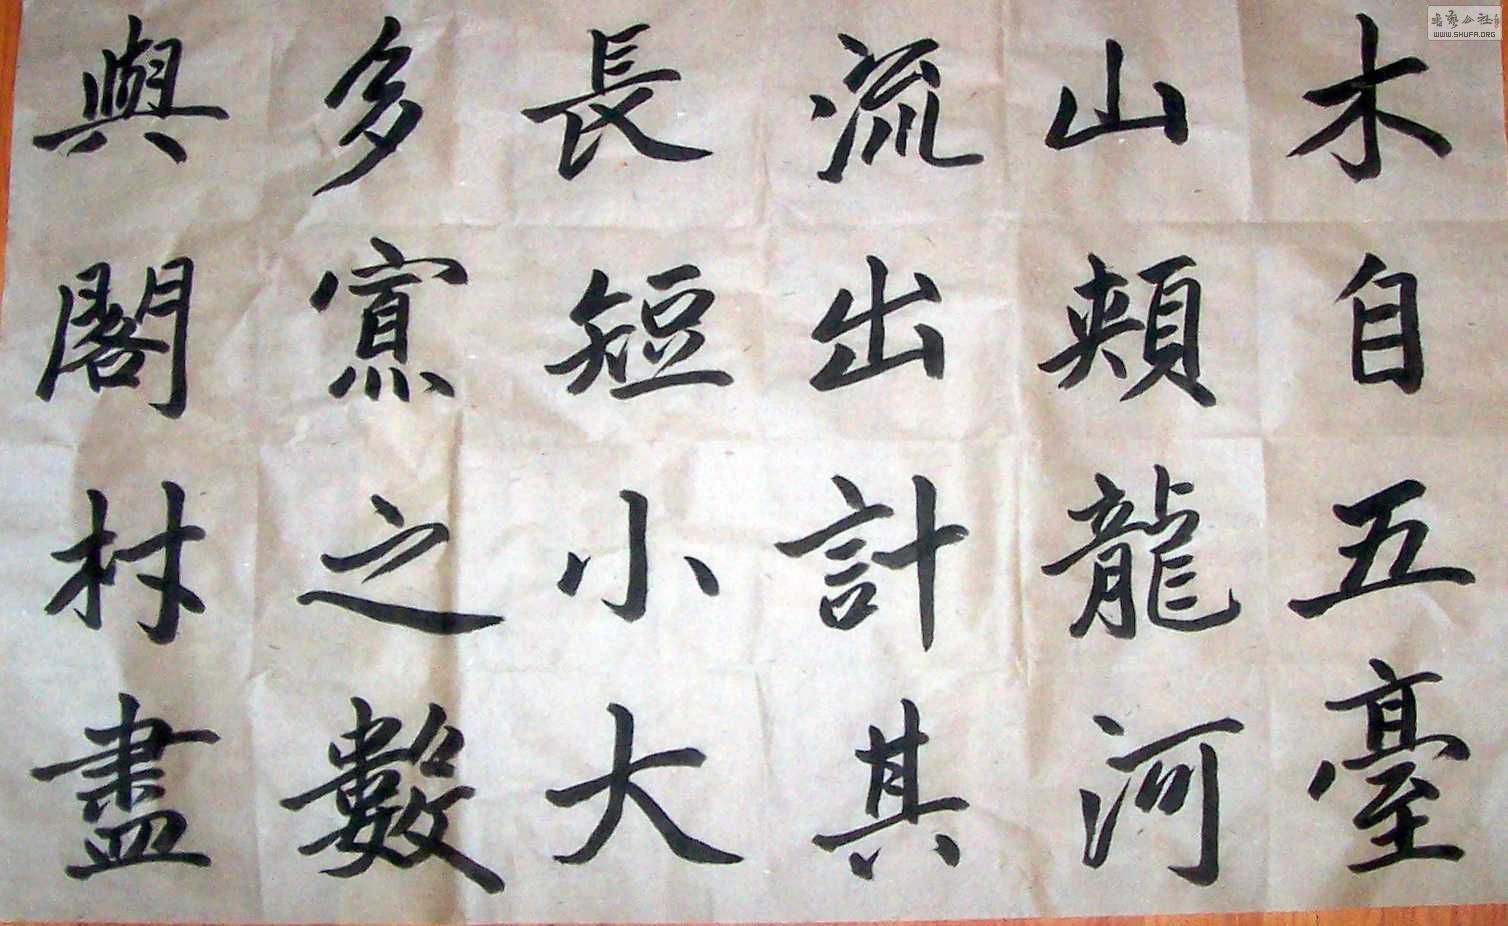 木自五臺
山頰龍河
流出計其
長短小大
多寡之數
與閣村盡
书艺公社
WWW.SHUFA.ORG